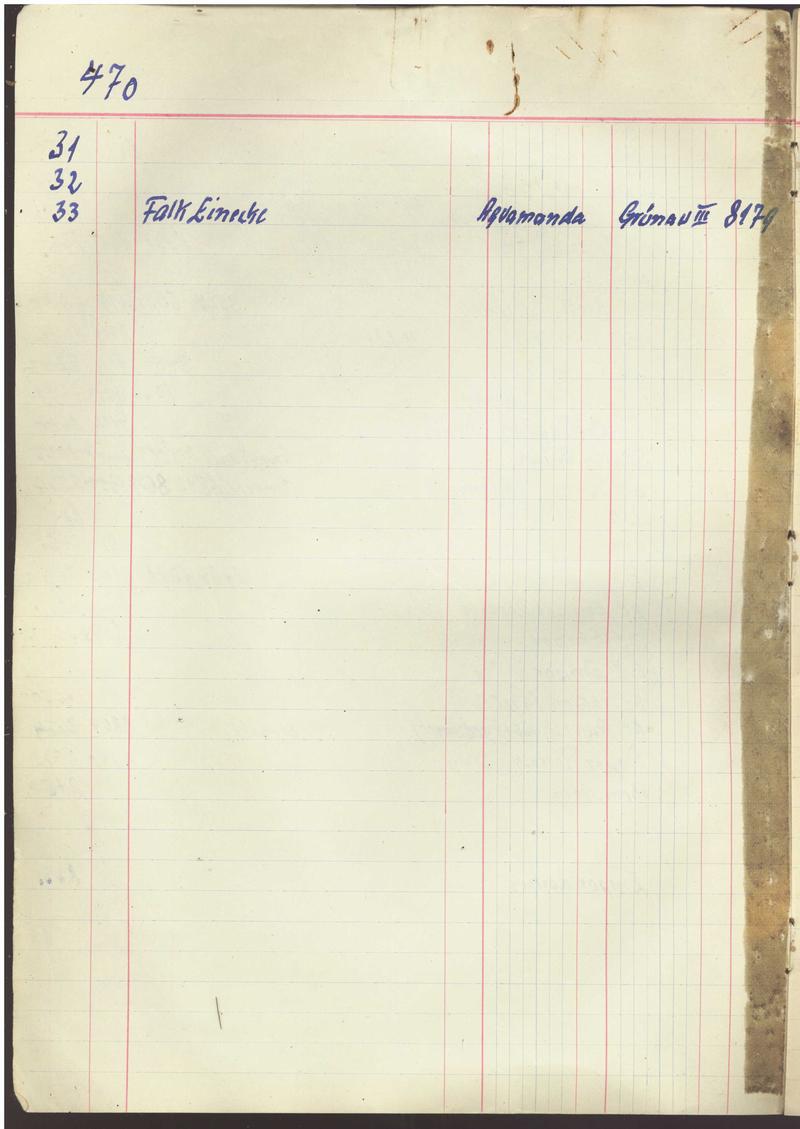 470
31
32
33 Falk Einecke Aqvamanda Grünau III 8179